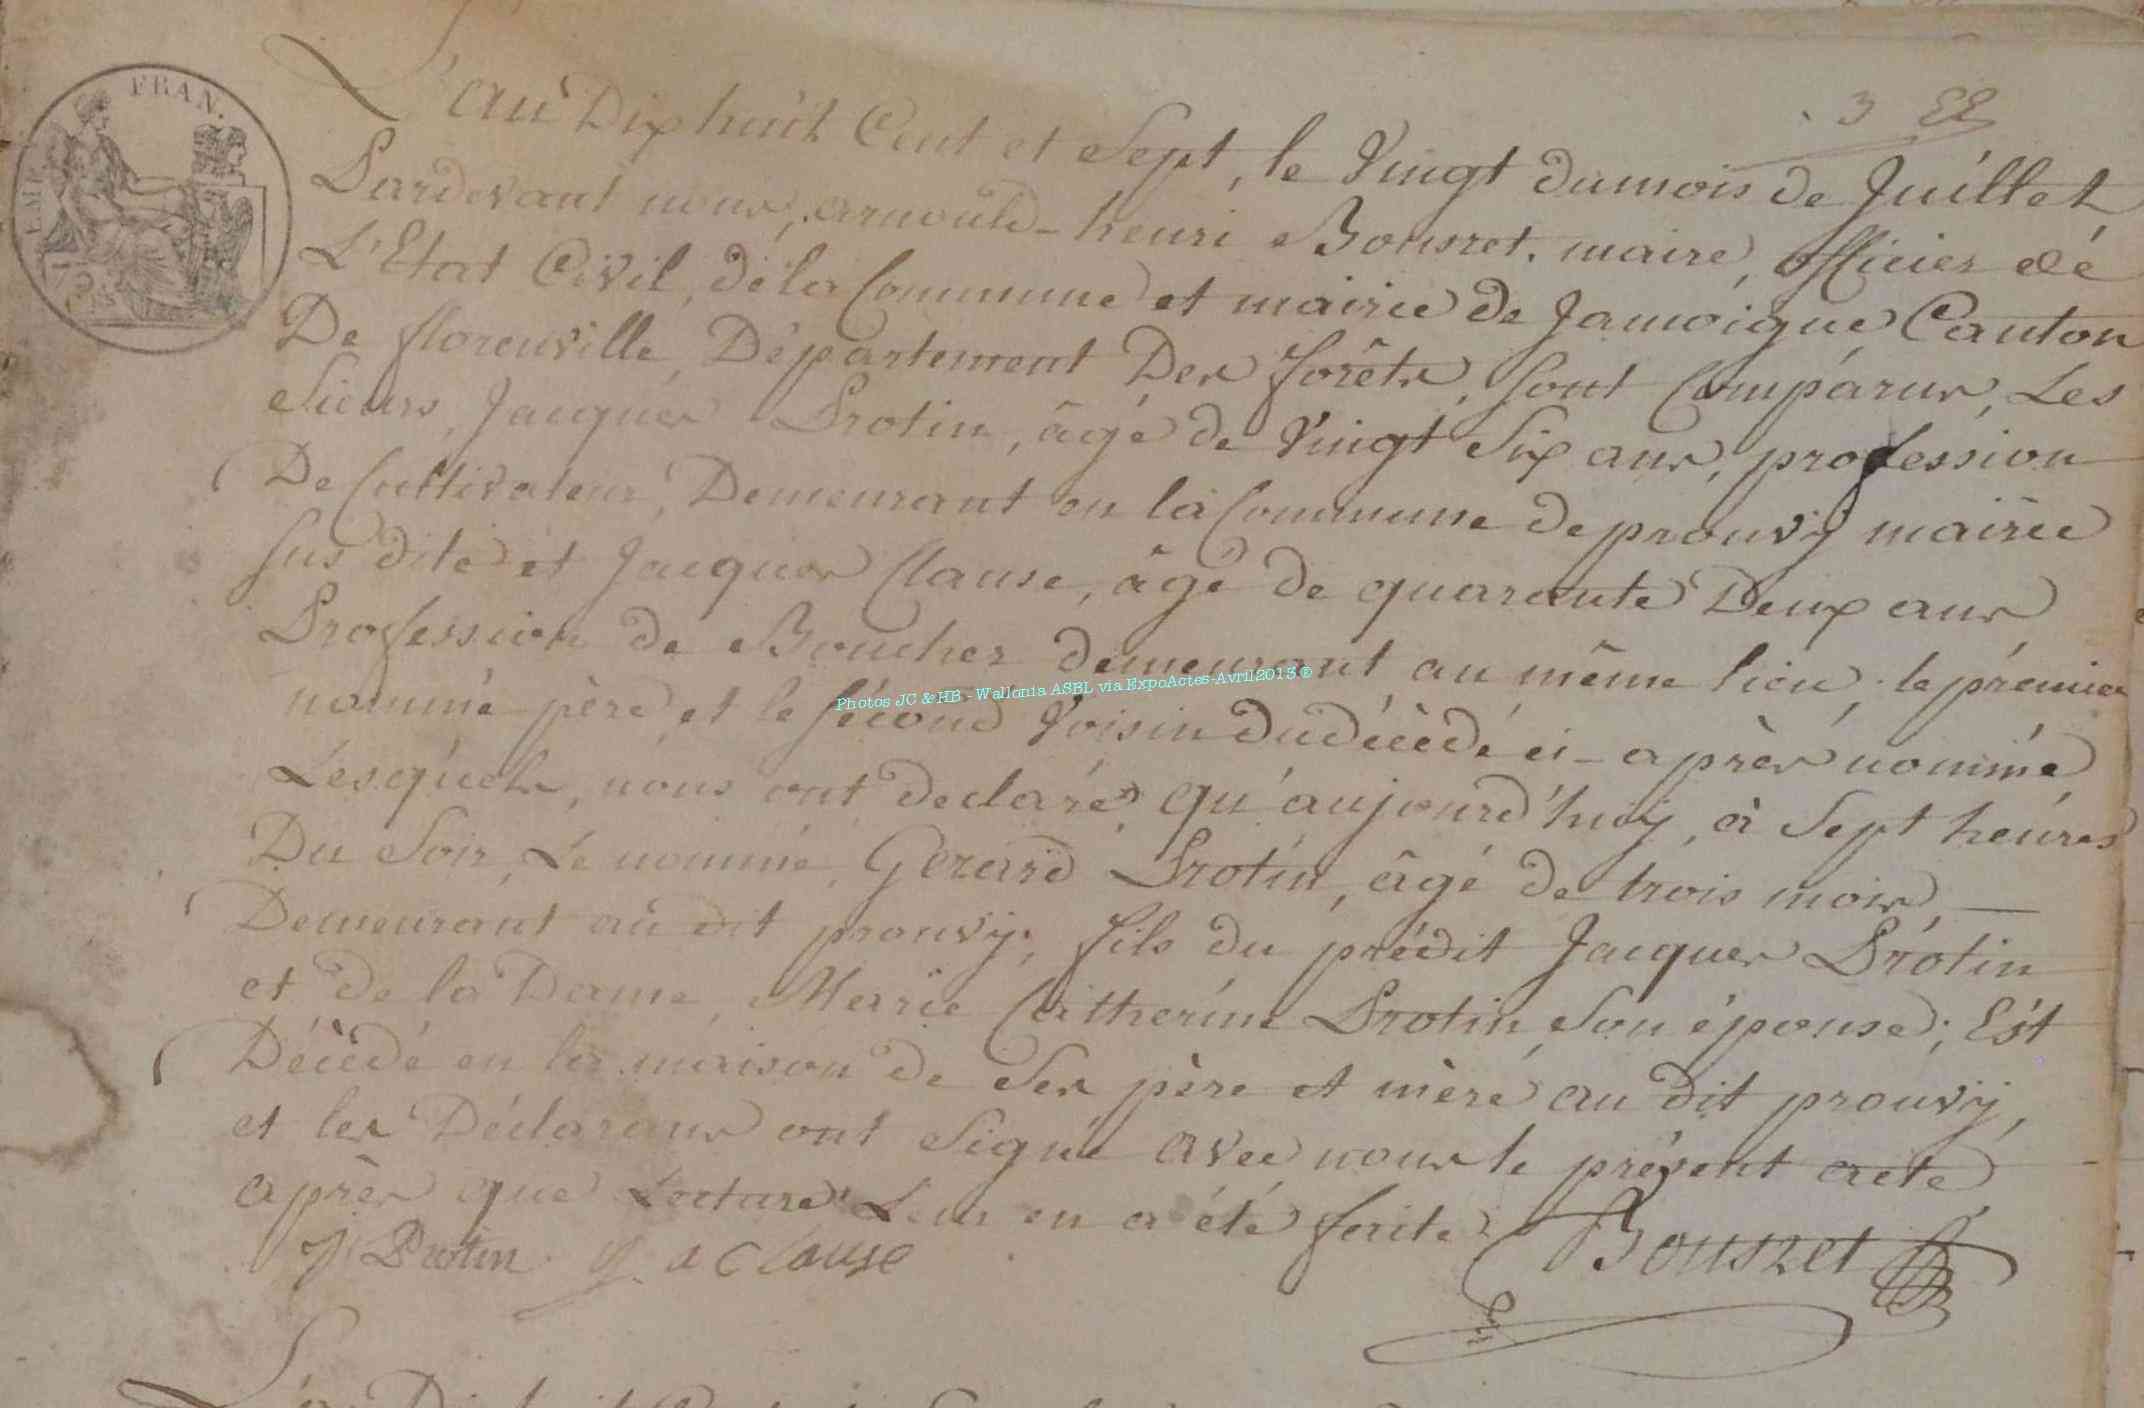 EMP. FRAN.
3 
L'an Dix huit Cent et Sept, le Vingt du mois de Juillet,
Pardevant nous, arnould-henri Bousret, maire, officier de
L'Etat Civil, de la Commune et mairie de Jamoigne, Canton
De florenville, Département Des forêts, Sont Comparus, Les
Sieurs, Jacques Protin, âgé de Vingt Six ans, profession
De Cultivateur, Demeurant en la Commune de prouvÿ mairie
Sus dite et Jacques Clause, âgé de quarante Deux ans
Profession de Boucher demeurant au même lieu; le prémier
nommé père, et le sécond Voisin du décédé ci-après nommé,
Lesquels, nous ont declaré, qu'aujourd'huÿ, à Sept heures
Du Soir, Le nommé, Gerard Protin, âgé de trois mois, —
Demeurant au dit prouvÿ, fils du prédit Jacques Protin
et de la Dame, Marie Catherine Protin, Son épouse; Est
Décédé en la maison de Ses père et mère au dit prouvÿ,
et les Déclarans ont Signé avec nous le présent acte
après que Lecture Leur en a été faite
J Protin J. a Clause Bousret
Photos JC & HB - Wallonia ASBL via ExpoActes-Avril2013 ©